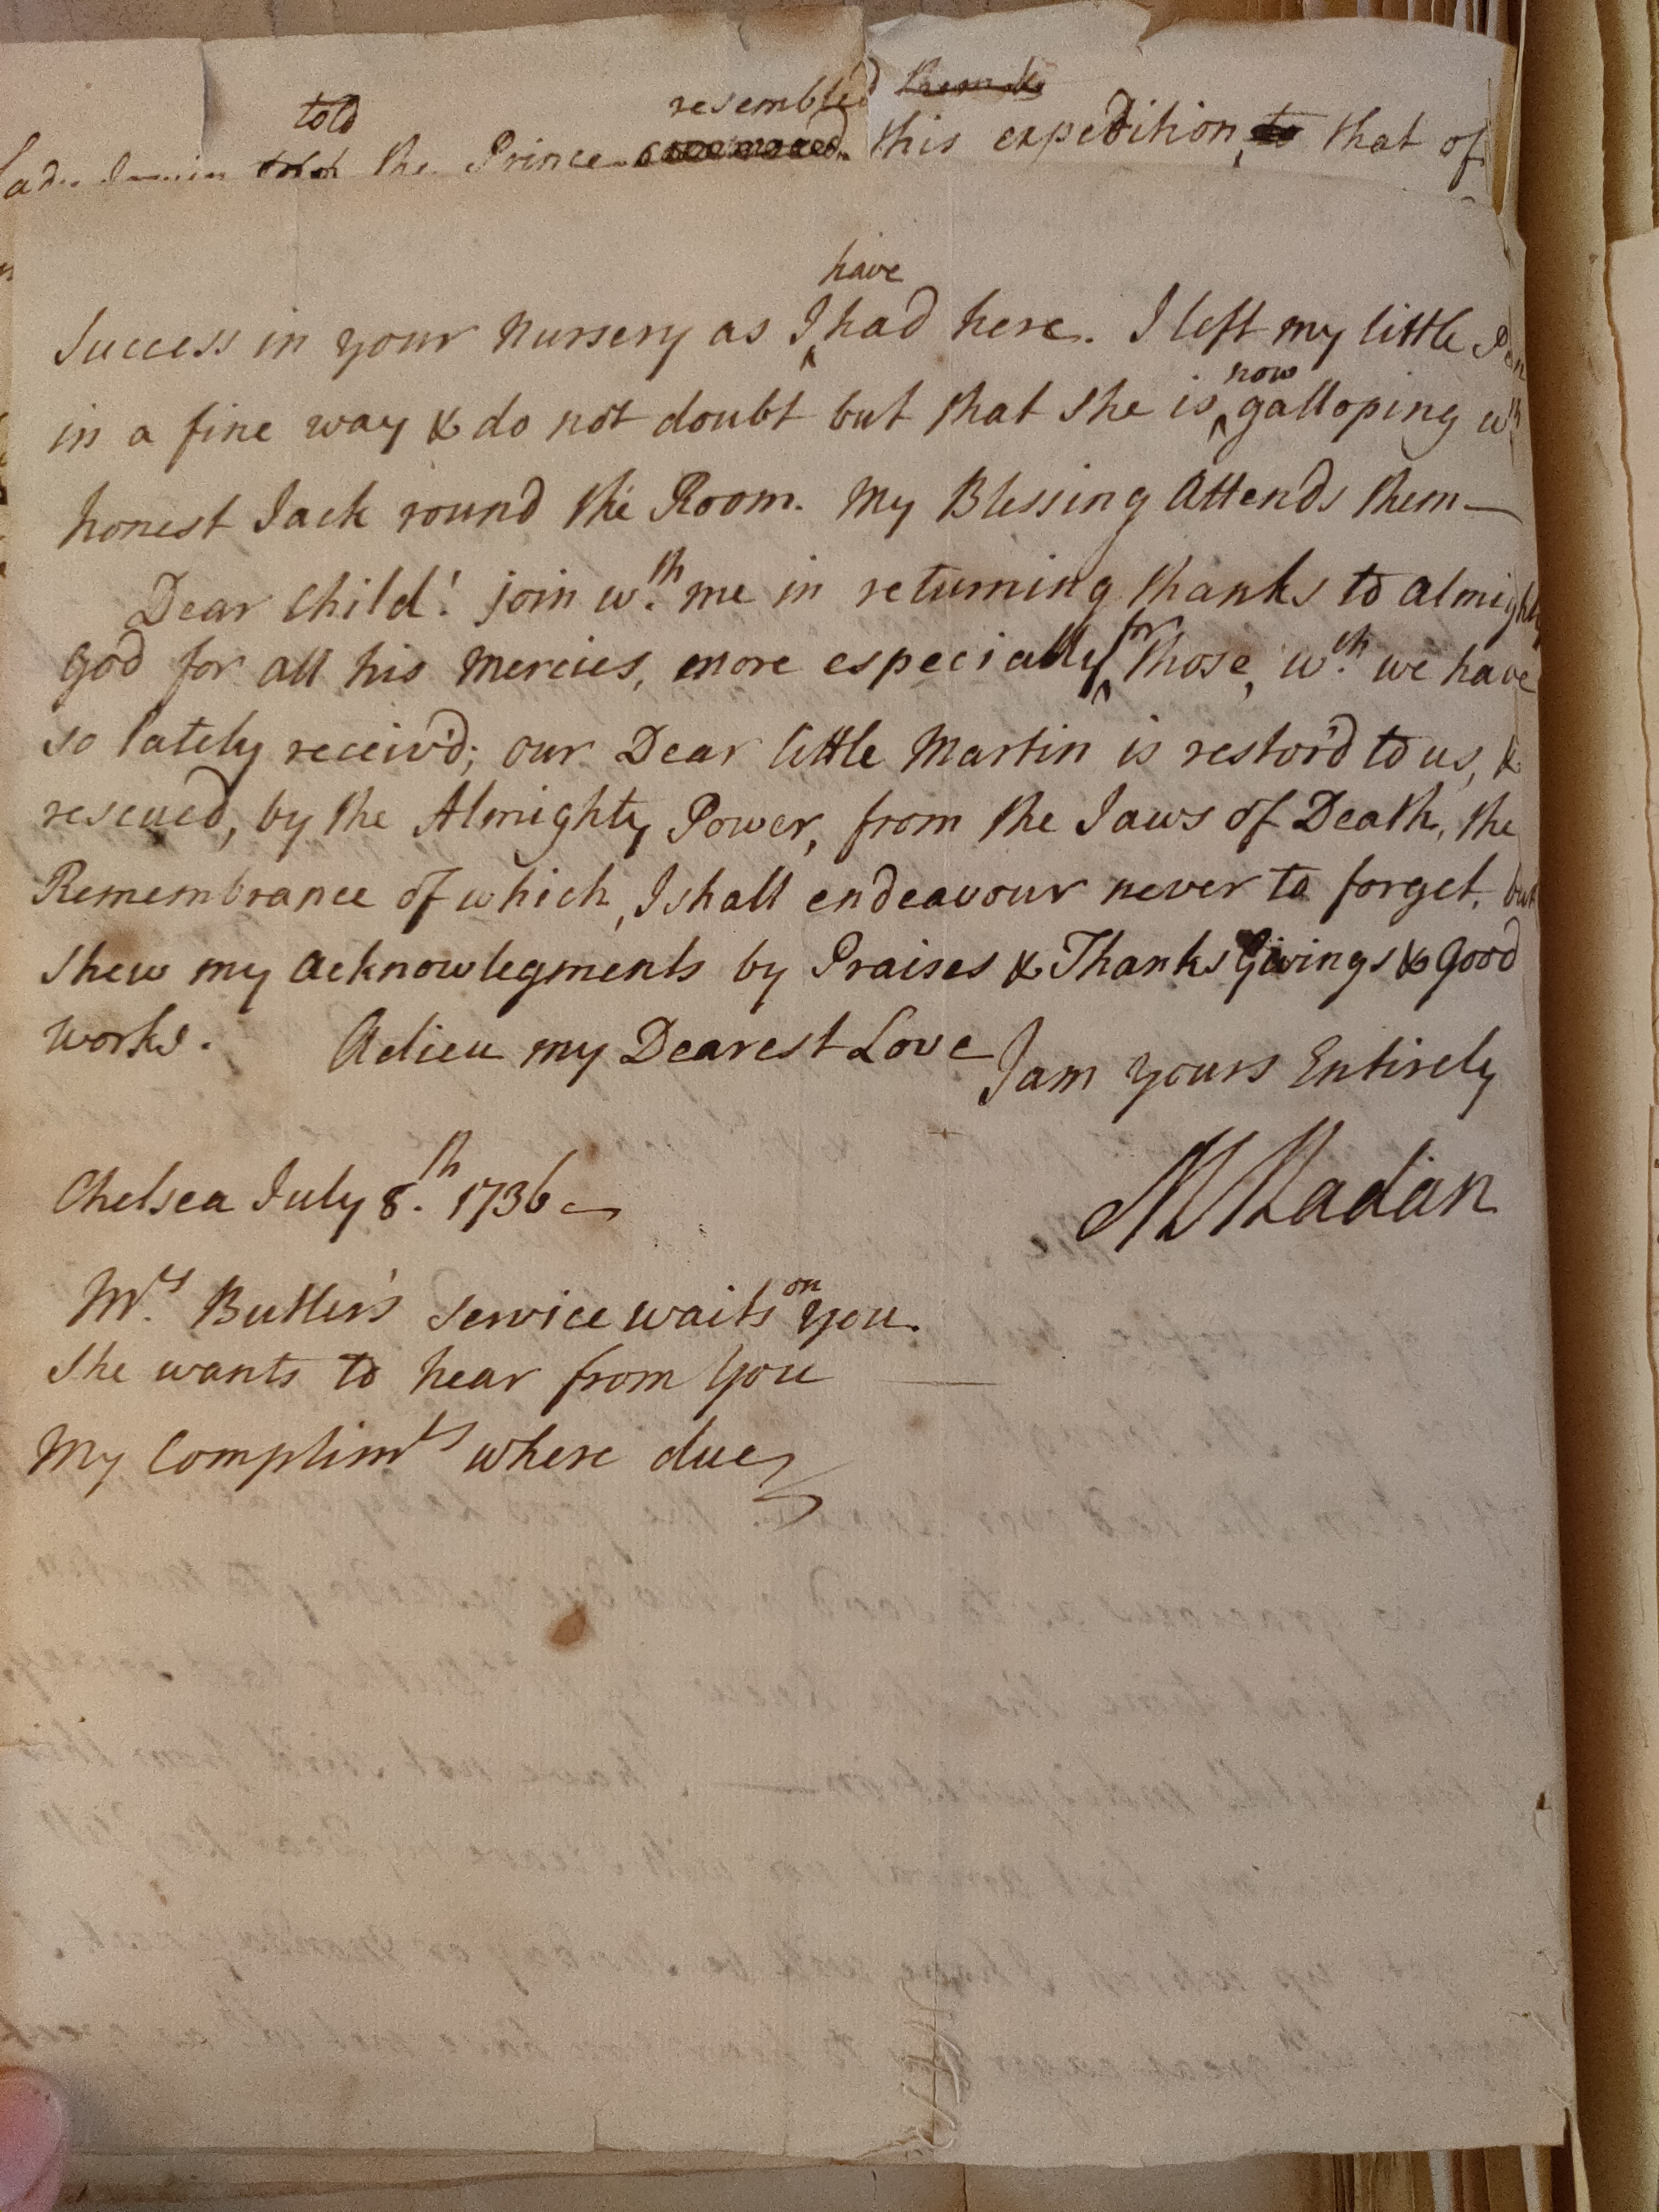 told resembled
the Prince this expedition, that of
have
Success in your Nursery as I had here. I left my little
now
in a fine way & do not doubt but that she is galloping wth
honest Jack round the Room. My Blessing Attends them—
Dear Child! join wth. me in returning thanks to almighty
God for all his Mercies, more especially for those, wch. we have
so lately receiv'd; our Dear little Martin is restor'd to us, &
rescued, by the Almighty Power, from the Jaws of Death, the
Remembrance of which, I shall endeavour never to forget, but
shew my Acknowlegments by Praises & Thanks Givings & Good
works. Adieu my Dearest Love I am Yours Entirely
Chelsea July 8.th 1736 M Madan
Mrs. Butler's Service waits on you.
She wants to hear from You
My Complimts where due